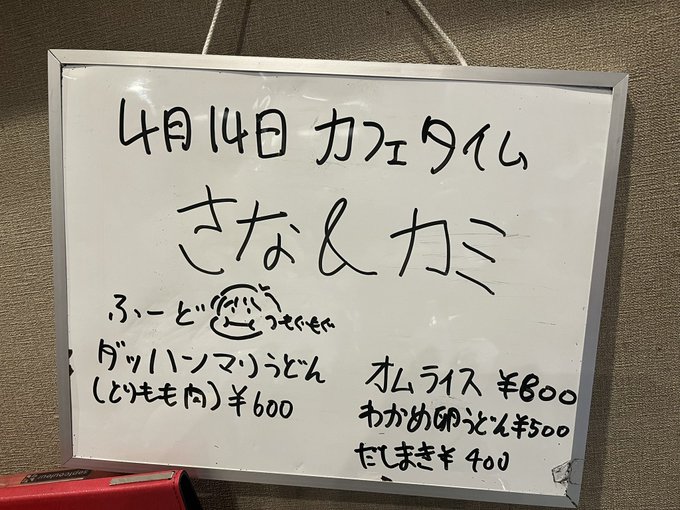 4月14日 カフェタイム
さな&カミ
ふーど
もぐもぐ
ダッハンマリうどん
(とりもも肉) ¥600
オムライス ¥800
わかめ卵うどん¥500
だしまき¥ 400